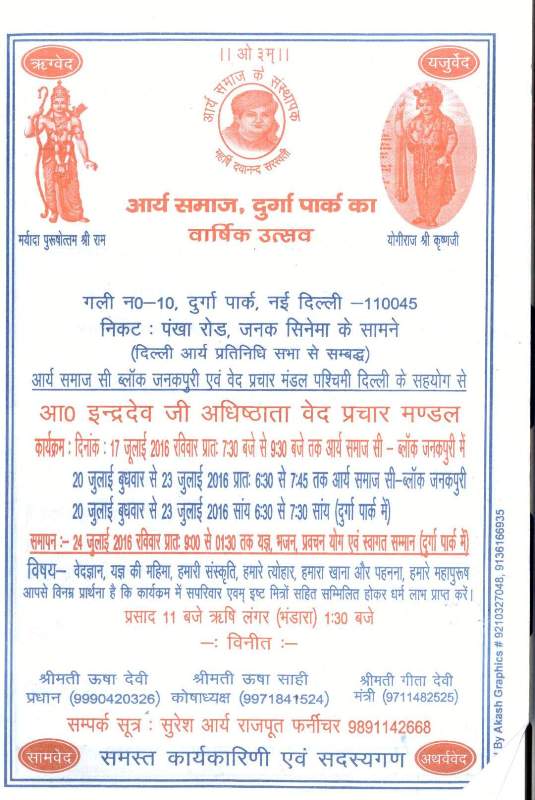 ।। ओ३म्।।
ऋग्वेद
यजुर्वेद
आर्य समाज के संस्थापक
महर्षि दयानन्द सरस्वती
मर्यादा पुरूषोत्तम श्री राम
योगीराज श्री कृष्णजी
आर्य समाज, दुर्गा पार्क का
वार्षिक उत्सव
गली न0–10, दुर्गा पार्क, नई दिल्ली –110045
निकट : पंखा रोड, जनक सिनेमा के सामने
(दिल्ली आर्य प्रतिनिधि सभा से सम्बद्ध)
आर्य समाज सी ब्लॉक जनकपुरी एवं वेद प्रचार मंडल पश्चिमी दिल्ली के सहयोग से
आ0 इन्द्रदेव जी अधिष्ठाता वेद प्रचार मण्डल
कार्यक्रम : दिनांक : 17 जूलाई 2016 रविवार प्रातः 7:30 बजे से 9:30 बजे तक आर्य समाज सी – ब्लॉक जनकपुरी में
20 जुलाई बुधवार से 23 जुलाई 2016 प्रातः 6:30 से 7:45 तक आर्य समाज सी–ब्लॉक जनकपुरी
20 जुलाई बुधवार से 23 जुलाई 2016 सांय 6:30 से 7:30 सांय (दुर्गा पार्क में)
समापन :– 24 जुलाई 2016 रविवार प्रातः 9:00 से 01:30 तक यज्ञ, भजन, प्रवचन योग एवं स्वागत सम्मान (दुर्गा पार्क में)
विषय– वेदज्ञान, यज्ञ की महिमा, हमारी संस्कृति, हमारे त्योहार, हमारा खाना और पहनना, हमारे महापुरूष
आपसे विनम्र प्रार्थना है कि कार्यकम में सपरिवार एवम् इष्ट मित्रों सहित सम्मिलित होकर धर्म लाभ प्राप्त करें।
प्रसाद 11 बजे ऋषि लंगर (भंडारा) 1:30 बजे
–: विनीत :–
श्रीमती ऊषा देवी
प्रधान (9990420326)
श्रीमती ऊषा साही
कोषाध्यक्ष (9971841524)
श्रीमती गीता देवी
मंत्री (9711482525)
सम्पर्क सूत्र : सुरेश आर्य राजपूत फर्नीचर 9891142668
सामवेद
समस्त कार्यकारिणी एवं सदस्यगण
अथर्ववेद
By Akash Graphics # 9210327048, 9136166935